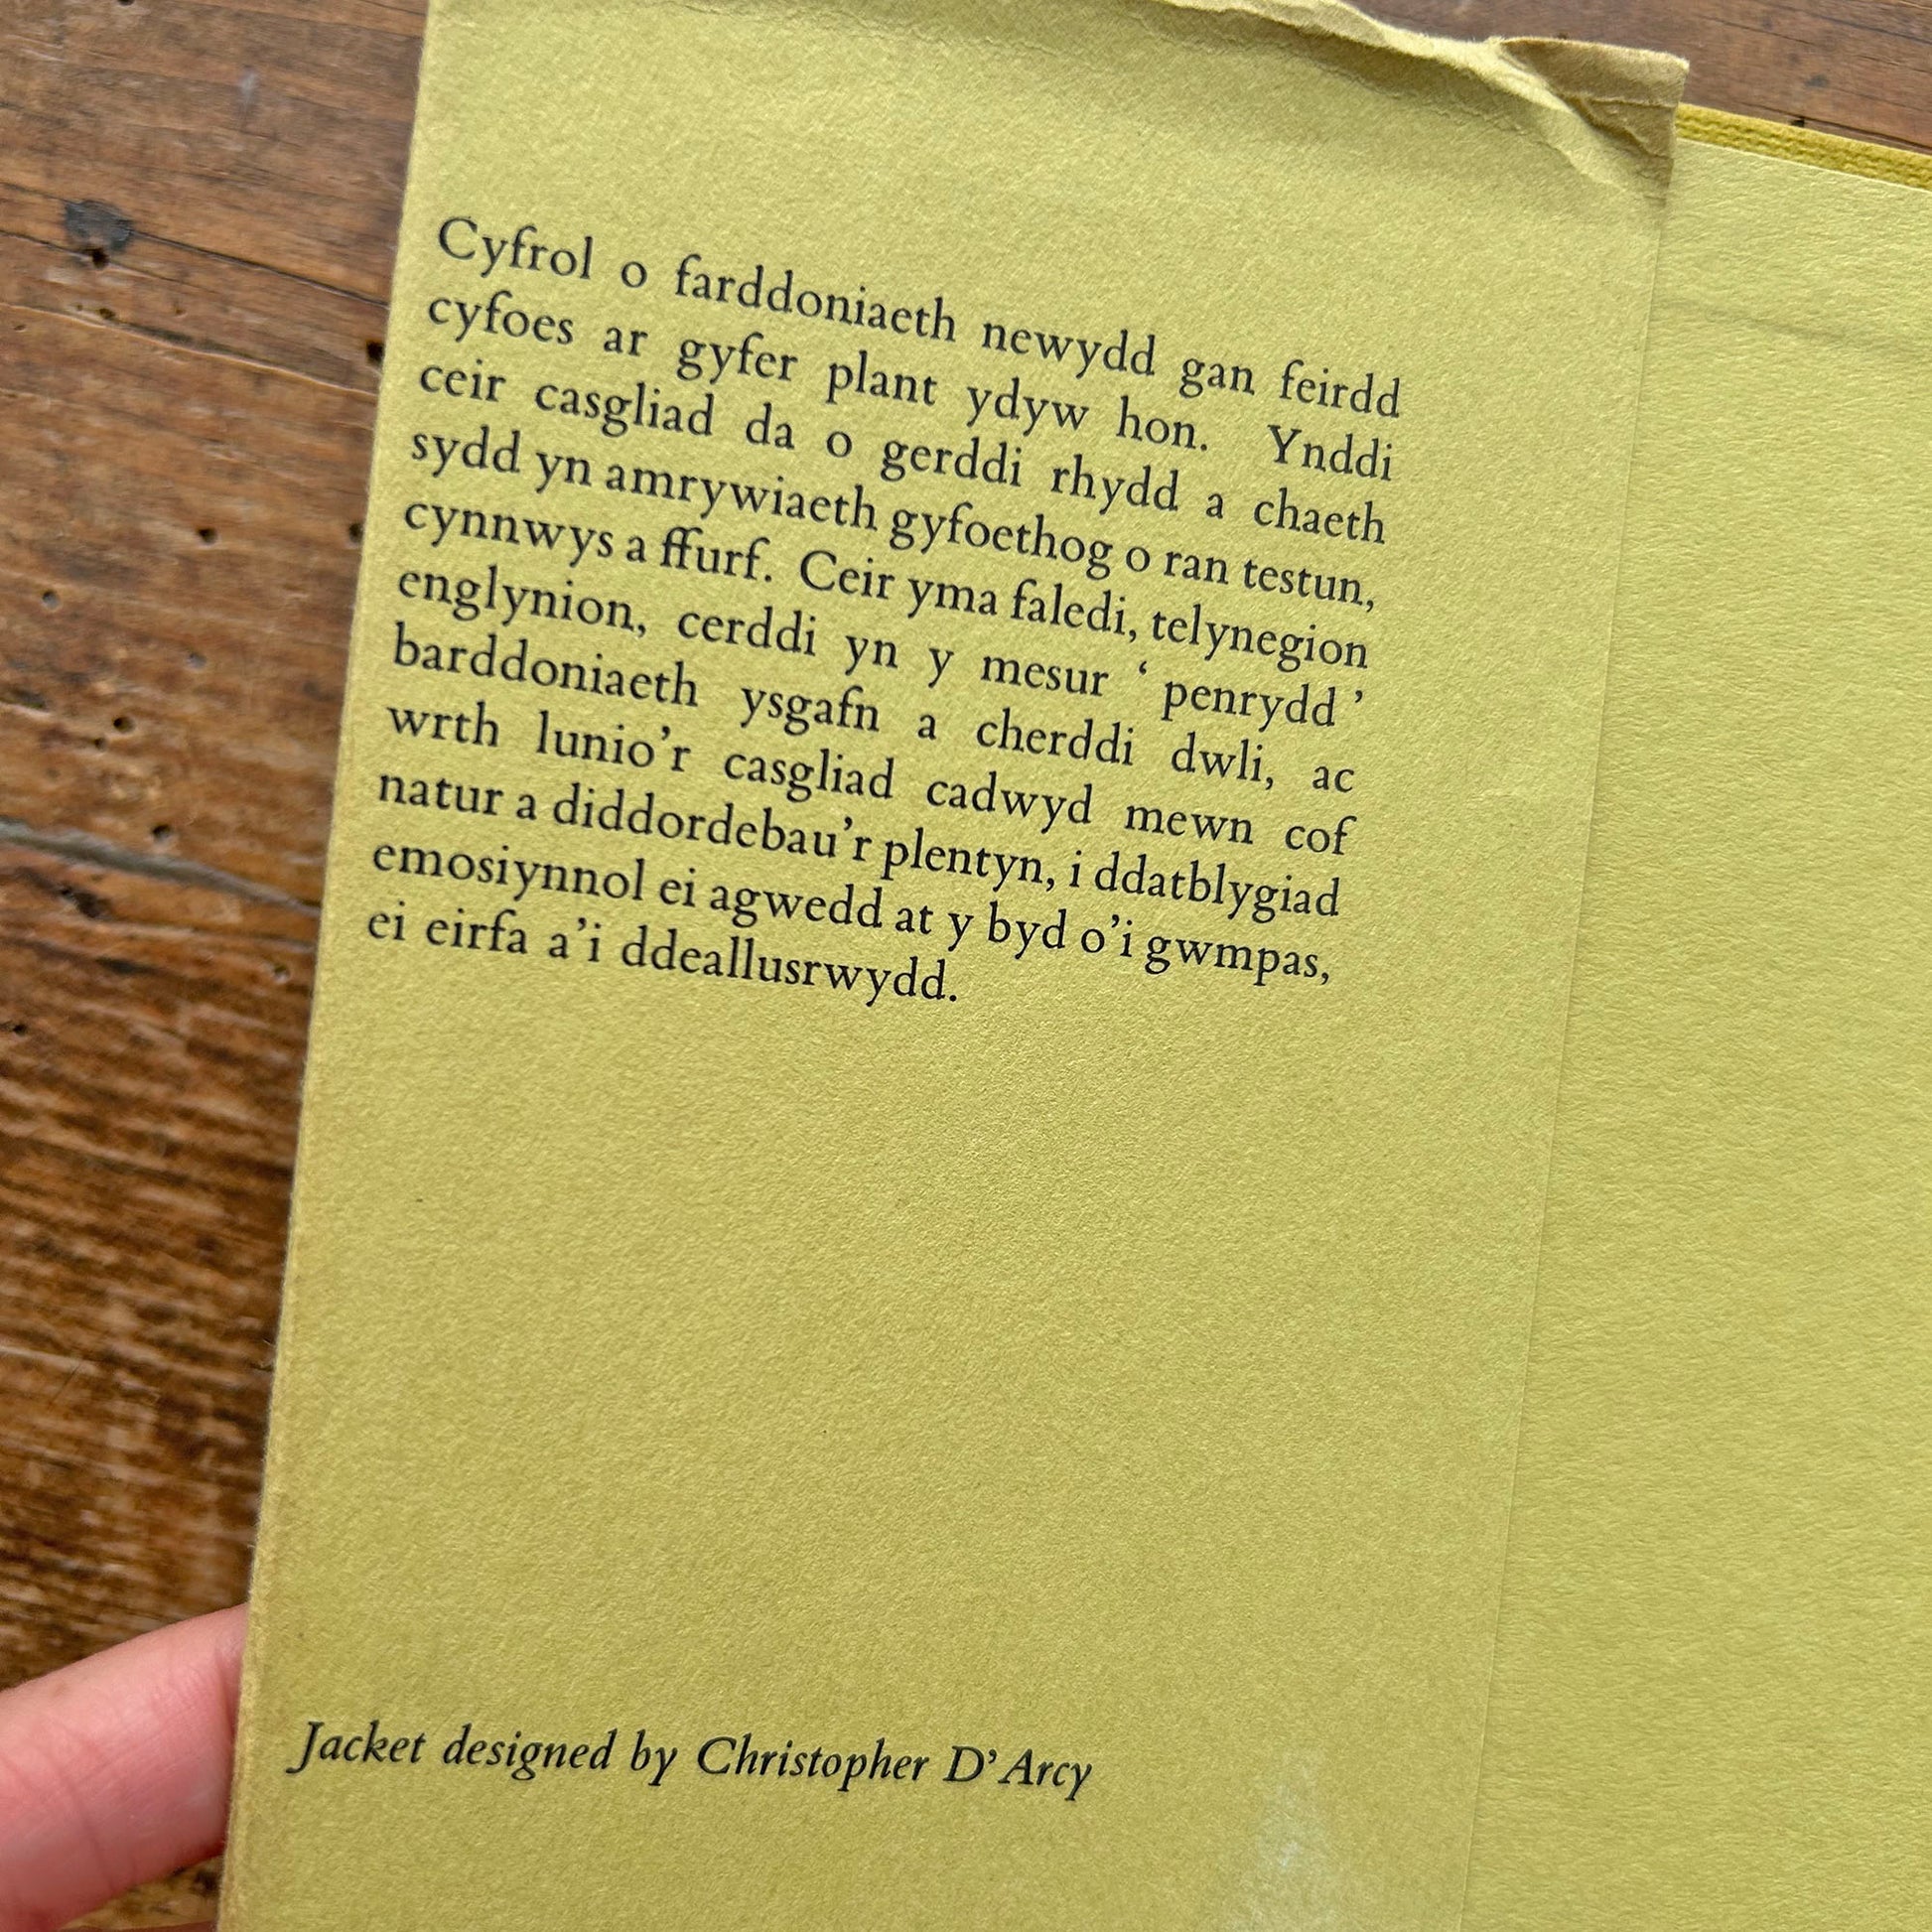 Cyfrol o farddoniaeth newydd gan feirdd
cyfoes ar gyfer plant ydyw hon. Ynddi
ceir casgliad da o gerddi rhydd a chaeth
sydd yn amrywiaeth gyfoethog o ran testun,
cynnwys a ffurf. Ceir yma faledi, telynegion
englynion, cerddi yn y mesur ‘ penrydd ’
barddoniaeth ysgafn a cherddi dwli, ac
wrth lunio’r casgliad cadwyd mewn cof
natur a diddordebau’r plentyn, i ddatblygiad
emosiynnol ei agwedd at y byd o’i gwmpas,
ei eirfa a’i ddeallusrwydd.
Jacket designed by Christopher D’Arcy